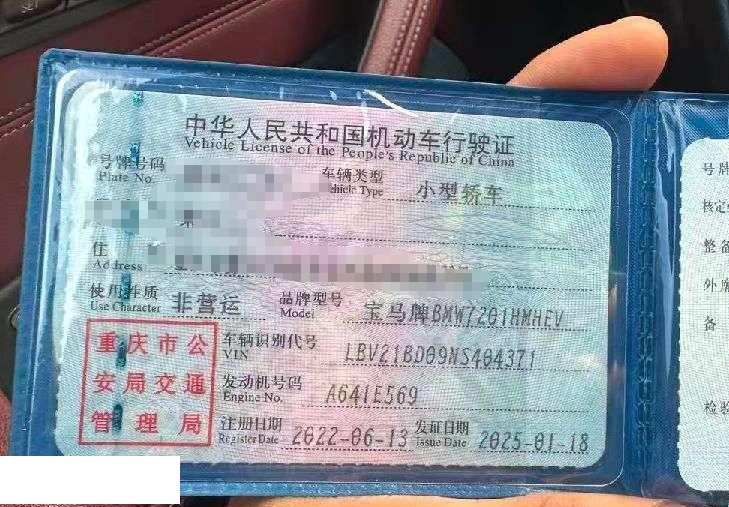 中华人民共和国机动车行驶证
Vehicle License of the People's Republic of China
号牌号码 车辆类型 小型轿车
Plate No. Vehicle Type
住
Address
使用性质 非营运 品牌型号 宝马牌BMW7201HMHEV
Use Character Model
重庆市公
安局交通
管理局
车辆识别代号 LBV21BD09NS404371
VIN
发动机号码 A641E569
Engine No.
注册日期 2022-06-13 发证日期 2025-01-18
Register Date Issue Date
号牌
核定
整备
外廓
备
检验